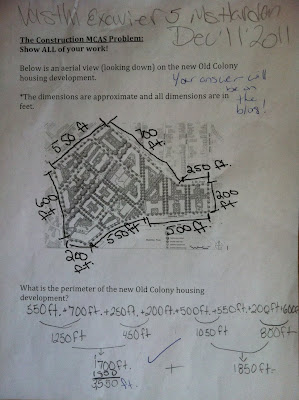 Vasthi Exavier 5 Ms Hardon
Dec'11'2011
The Construction MCAS Problem:
Show ALL of your work!
Below is an aerial view (looking down) on the new Old Colony
housing development.
Your answer will
be on
the
blog!
*The dimensions are approximate and all dimensions are in
feet.
550 ft.
700
ft.
250 ft.
200
ft.
500 ft.
550 ft
200
ft.
ft.
What is the perimeter of the new Old Colony housing
development?
550ft.+700ft.+250ft.+200ft+500ft+550ft+200ft+600ft
1250ft 450ft 1050ft 800ft
1700ft. + 1850ft.
1850
3550ft.